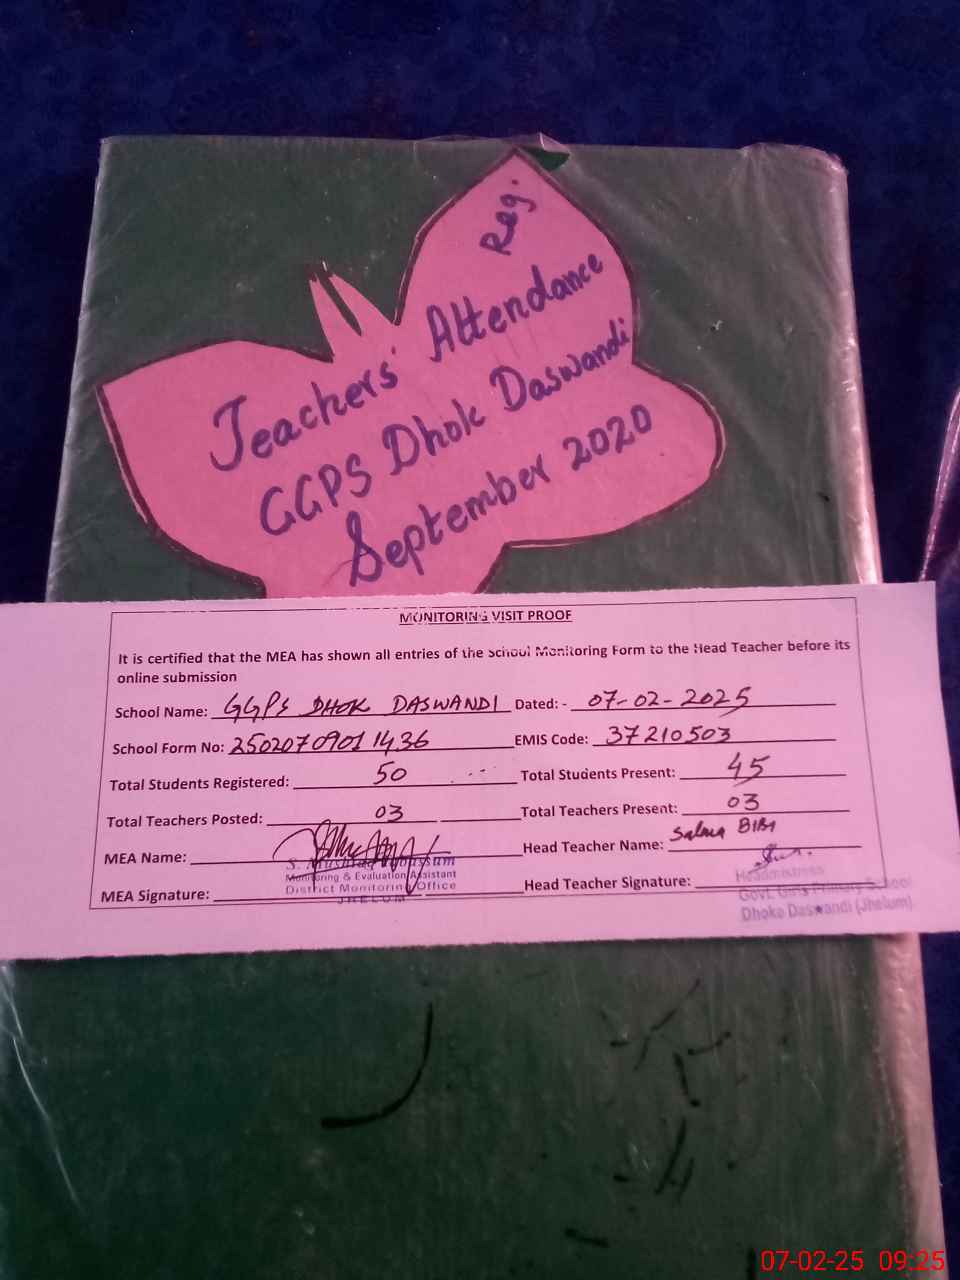 Reg.
Teachers' Attendance
GGPS Dhok Daswandi
September 2020
MONITORING VISIT PROOF
It is certified that the MEA has shown all entries of the School Monitoring Form to the Head Teacher before its
online submission
School Name: GGPS DHOK DASWANDI Dated: - 07-02-2025
School Form No: 25020709011436 EMIS Code: 37210503
Total Students Registered: 50 Total Students Present: 45
Total Teachers Posted: 03 Total Teachers Present: 03
MEA Name: Head Teacher Name: Salma BIBI
S. Mushtaq Tabassum
Monitoring & Evaluation Assistant
District Monitoring Office
JHELUM
MEA Signature: Head Teacher Signature:
Headmistress
Govt. Girls Primary School
Dhoke Daswandi (Jhelum)
07-02-25 09:25